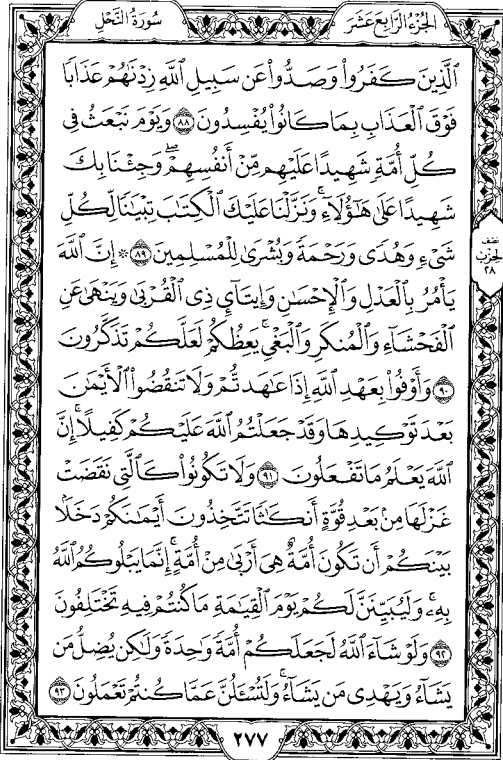 الجزء الرابع عشر
سورة النحل
ٱلَّذِينَ كَفَرُوا۟ وَصَدُّوا۟ عَن سَبِيلِ ٱللَّهِ زِدْنَـٰهُمْ عَذَابًا
فَوْقَ ٱلْعَذَابِ بِمَا كَانُوا۟ يُفْسِدُونَ ٨٨ وَيَوْمَ نَبْعَثُ فِى
كُلِّ أُمَّةٍ شَهِيدًا عَلَيْهِم مِّنْ أَنفُسِهِمْ ۖ وَجِئْنَا بِكَ
شَهِيدًا عَلَىٰ هَـٰٓؤُلَآءِ ۚ وَنَزَّلْنَا عَلَيْكَ ٱلْكِتَـٰبَ تِبْيَـٰنًا لِّكُلِّ
شَىْءٍ وَهُدًى وَرَحْمَةً وَبُشْرَىٰ لِلْمُسْلِمِينَ ٨٩ ۞ إِنَّ ٱللَّهَ
يَأْمُرُ بِٱلْعَدْلِ وَٱلْإِحْسَـٰنِ وَإِيتَآئِ ذِى ٱلْقُرْبَىٰ وَيَنْهَىٰ عَنِ
ٱلْفَحْشَآءِ وَٱلْمُنكَرِ وَٱلْبَغْىِ ۚ يَعِظُكُمْ لَعَلَّكُمْ تَذَكَّرُونَ
٩٠ وَأَوْفُوا۟ بِعَهْدِ ٱللَّهِ إِذَا عَـٰهَدتُّمْ وَلَا تَنقُضُوا۟ ٱلْأَيْمَـٰنَ
بَعْدَ تَوْكِيدِهَا وَقَدْ جَعَلْتُمُ ٱللَّهَ عَلَيْكُمْ كَفِيلًا ۚ إِنَّ
ٱللَّهَ يَعْلَمُ مَا تَفْعَلُونَ ٩١ وَلَا تَكُونُوا۟ كَٱلَّتِى نَقَضَتْ
غَزْلَهَا مِنۢ بَعْدِ قُوَّةٍ أَنكَـٰثًا تَتَّخِذُونَ أَيْمَـٰنَكُمْ دَخَلًۢا
بَيْنَكُمْ أَن تَكُونَ أُمَّةٌ هِىَ أَرْبَىٰ مِنْ أُمَّةٍ ۚ إِنَّمَا يَبْلُوكُمُ ٱللَّهُ
بِهِۦ ۚ وَلَيُبَيِّنَنَّ لَكُمْ يَوْمَ ٱلْقِيَـٰمَةِ مَا كُنتُمْ فِيهِ تَخْتَلِفُونَ
٩٢ وَلَوْ شَآءَ ٱللَّهُ لَجَعَلَكُمْ أُمَّةً وَٰحِدَةً وَلَـٰكِن يُضِلُّ مَن
يَشَآءُ وَيَهْدِى مَن يَشَآءُ ۚ وَلَتُسْـَٔلُنَّ عَمَّا كُنتُمْ تَعْمَلُونَ ٩٣
نصف
الحزب
٢٨
٢٧٧